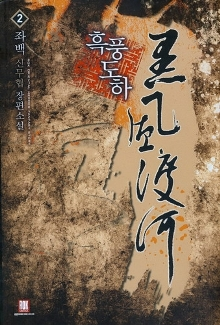 2
좌백
신무협 장편소설
흑풍도하
黑風渡河